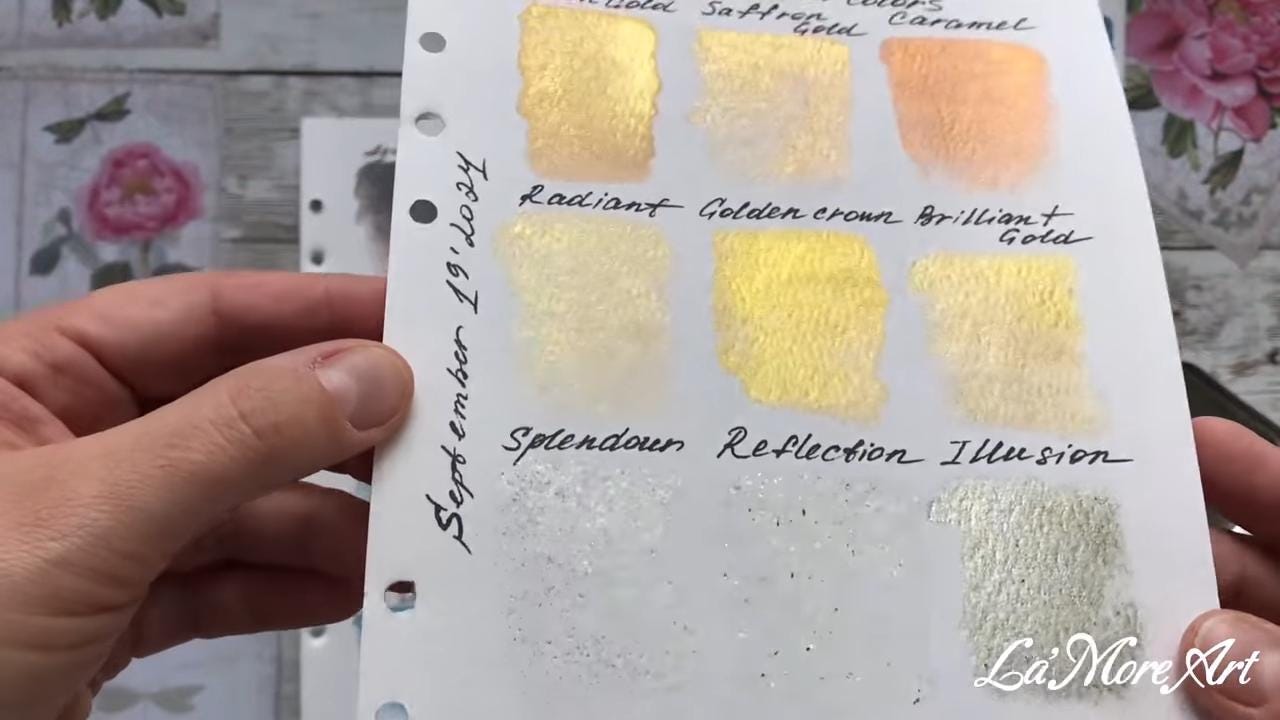 Gold Saffron Colors
Gold Caramel
Radiant Golden crown Brilliant
Gold
Splendour Reflection Illusion
September 19'2024
La'MoreArt